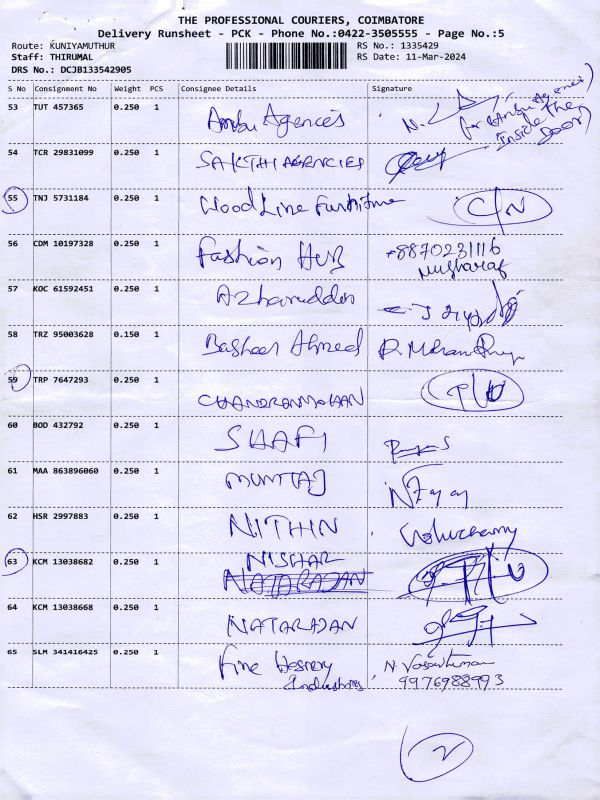 THE PROFESSIONAL COURIERS, COIMBATORE
Delivery Runsheet - PCK - Phone No.:0422-3505555 - Page No.:5
Route: KUNIYAMUTHUR RS No.: 1335429
Staff: THIRUMAL RS Date: 11-Mar-2024
DRS No.: DCJB133542905
S No Consignment No Weight PCS Consignee Details Signature
53 TUT 457365 0.250 1 Ambu Agencies N.
Inside the
Door)
54 TCR 29831099 0.250 1 SAKTHI AGENCIES
55 TNJ 5731184 0.250 1 Wood Line Furniture C/N
56 CDM 10197328 0.250 1 Fashion Hub +8870231116
Musharaf
57 KOC 61592451 0.250 1 Azharudden
58 TRZ 95003628 0.150 1 Basheer Ahmed
59 TRP 7647293 0.250 1 CHANDRANMOHAN
60 BOD 432792 0.250 1 SHAFI
61 MAA 863896060 0.250 1 MUMTAJ
62 HSR 2997883 0.250 1 NITHIN
63 KCM 13038682 0.250 1 NISHAR
NATARAJAN
64 KCM 13038668 0.250 1 NATARAJAN
65 SLM 341416425 0.250 1 Fine Hosiery N. Vasanthuman
Industries 9976988993
2